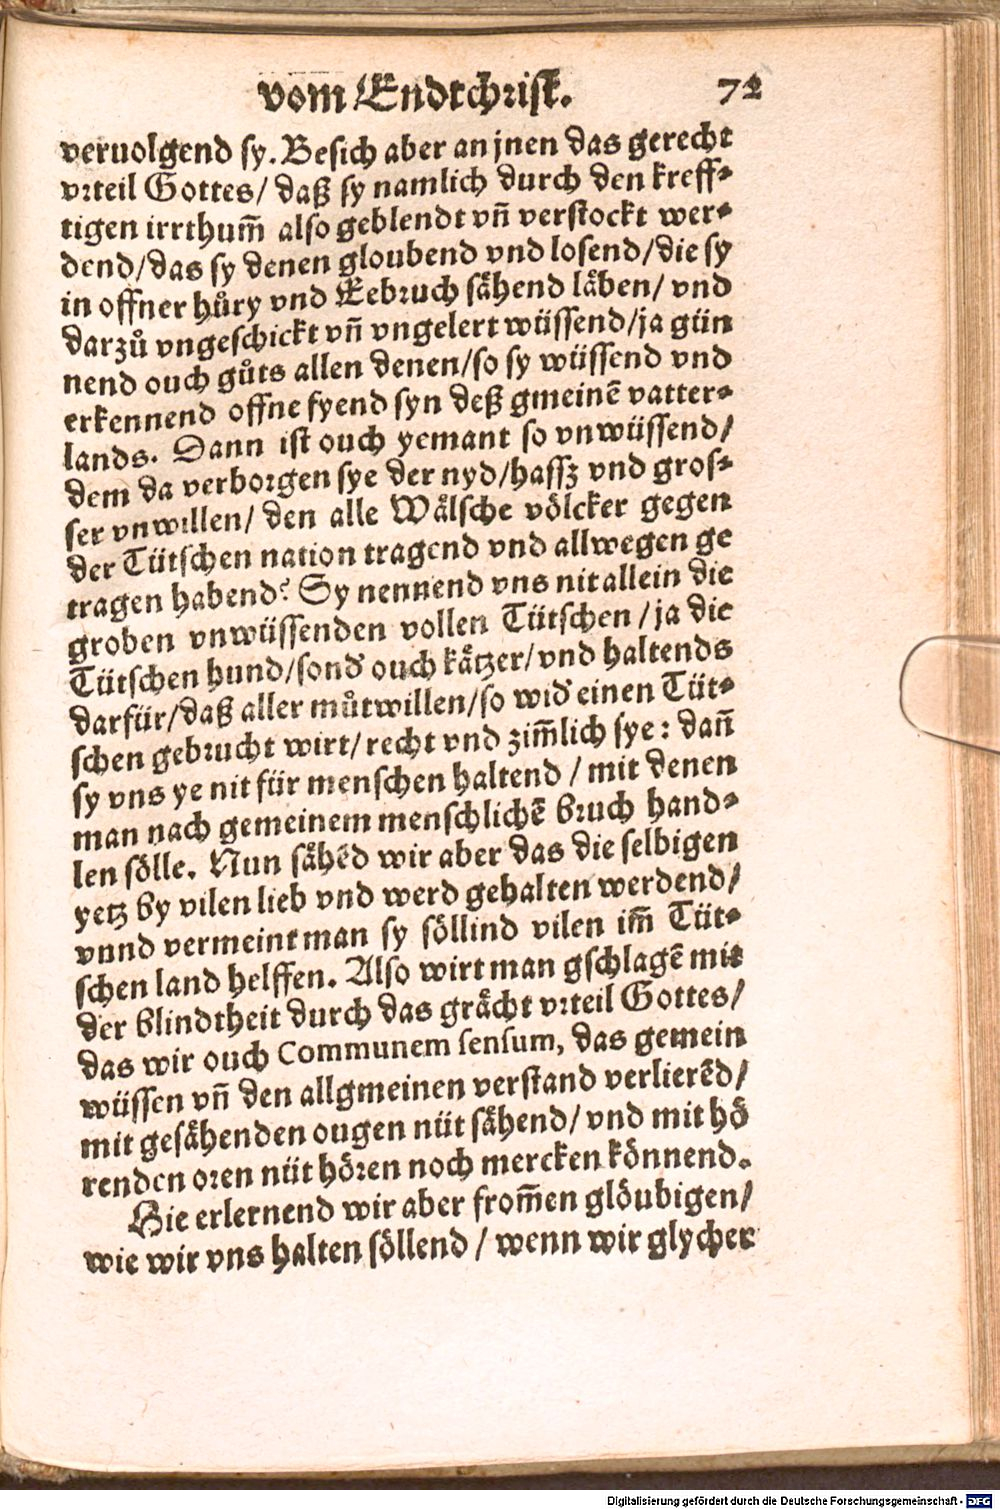 vom Endtchrist. 72
veruolgend sy. Besich aber an jnen das gerecht
vrteil Gottes/ daß sy namlich durch den kreff⸗
tigen irrthum̃ also geblendt vñ verstockt wer⸗
dend/das sy denen gloubend vnd losend/die sy
in offner hůry vnd Eebruch sähend läben/ vnd
darzů vngeschickt vñ vngelert wüssend/ja gün
nend ouch gůts allen denen/so sy wüssend vnd
erkennend offne fyend syn deß gmeinẽ vatter⸗
lands. Dann ist ouch yemant so vnwüssend/
dem da verborgen sye der nyd/hassz vnd gros⸗
ser vnwillen/ den alle Wälsche völcker gegen
der Tütschen nation tragend vnd allwegen ge
tragen habend? Sy nennend vns nit allein die
groben vnwüssenden vollen Tütschen/ja die
Tütschen hund/sond' ouch kätzer/vnd haltends
darfür/daß aller můtwillen/so wid' einen Tüt⸗
schen gebrucht wirt/recht vnd zim̃lich sye: dañ
sy vns ye nit für menschen haltend/mit denen
man nach gemeinem menschlichẽ bruch hand⸗
len sölle. Nun sähẽd wir aber das die selbigen
yetz by vilen lieb vnd werd gehalten werdend/
vnnd vermeint man sy söllind vilen im̃ Tüt⸗
schen land helffen. Also wirt man gschlagẽ mit
der blindtheit durch das grächt vrteil Gottes/
das wir ouch Communem sensum, das gemein
wüssen vñ den allgmeinen verstand verlierẽd/
mit gesähenden ougen nüt sähend/vnd mit hö
renden oren nüt hören noch mercken könnend.
Hie erlernend wir aber from̃en glöubigen/
wie wir vns halten söllend/wenn wir glycher
Digitalisierung gefördert durch die Deutsche Forschungsgemeinschaft - DFG